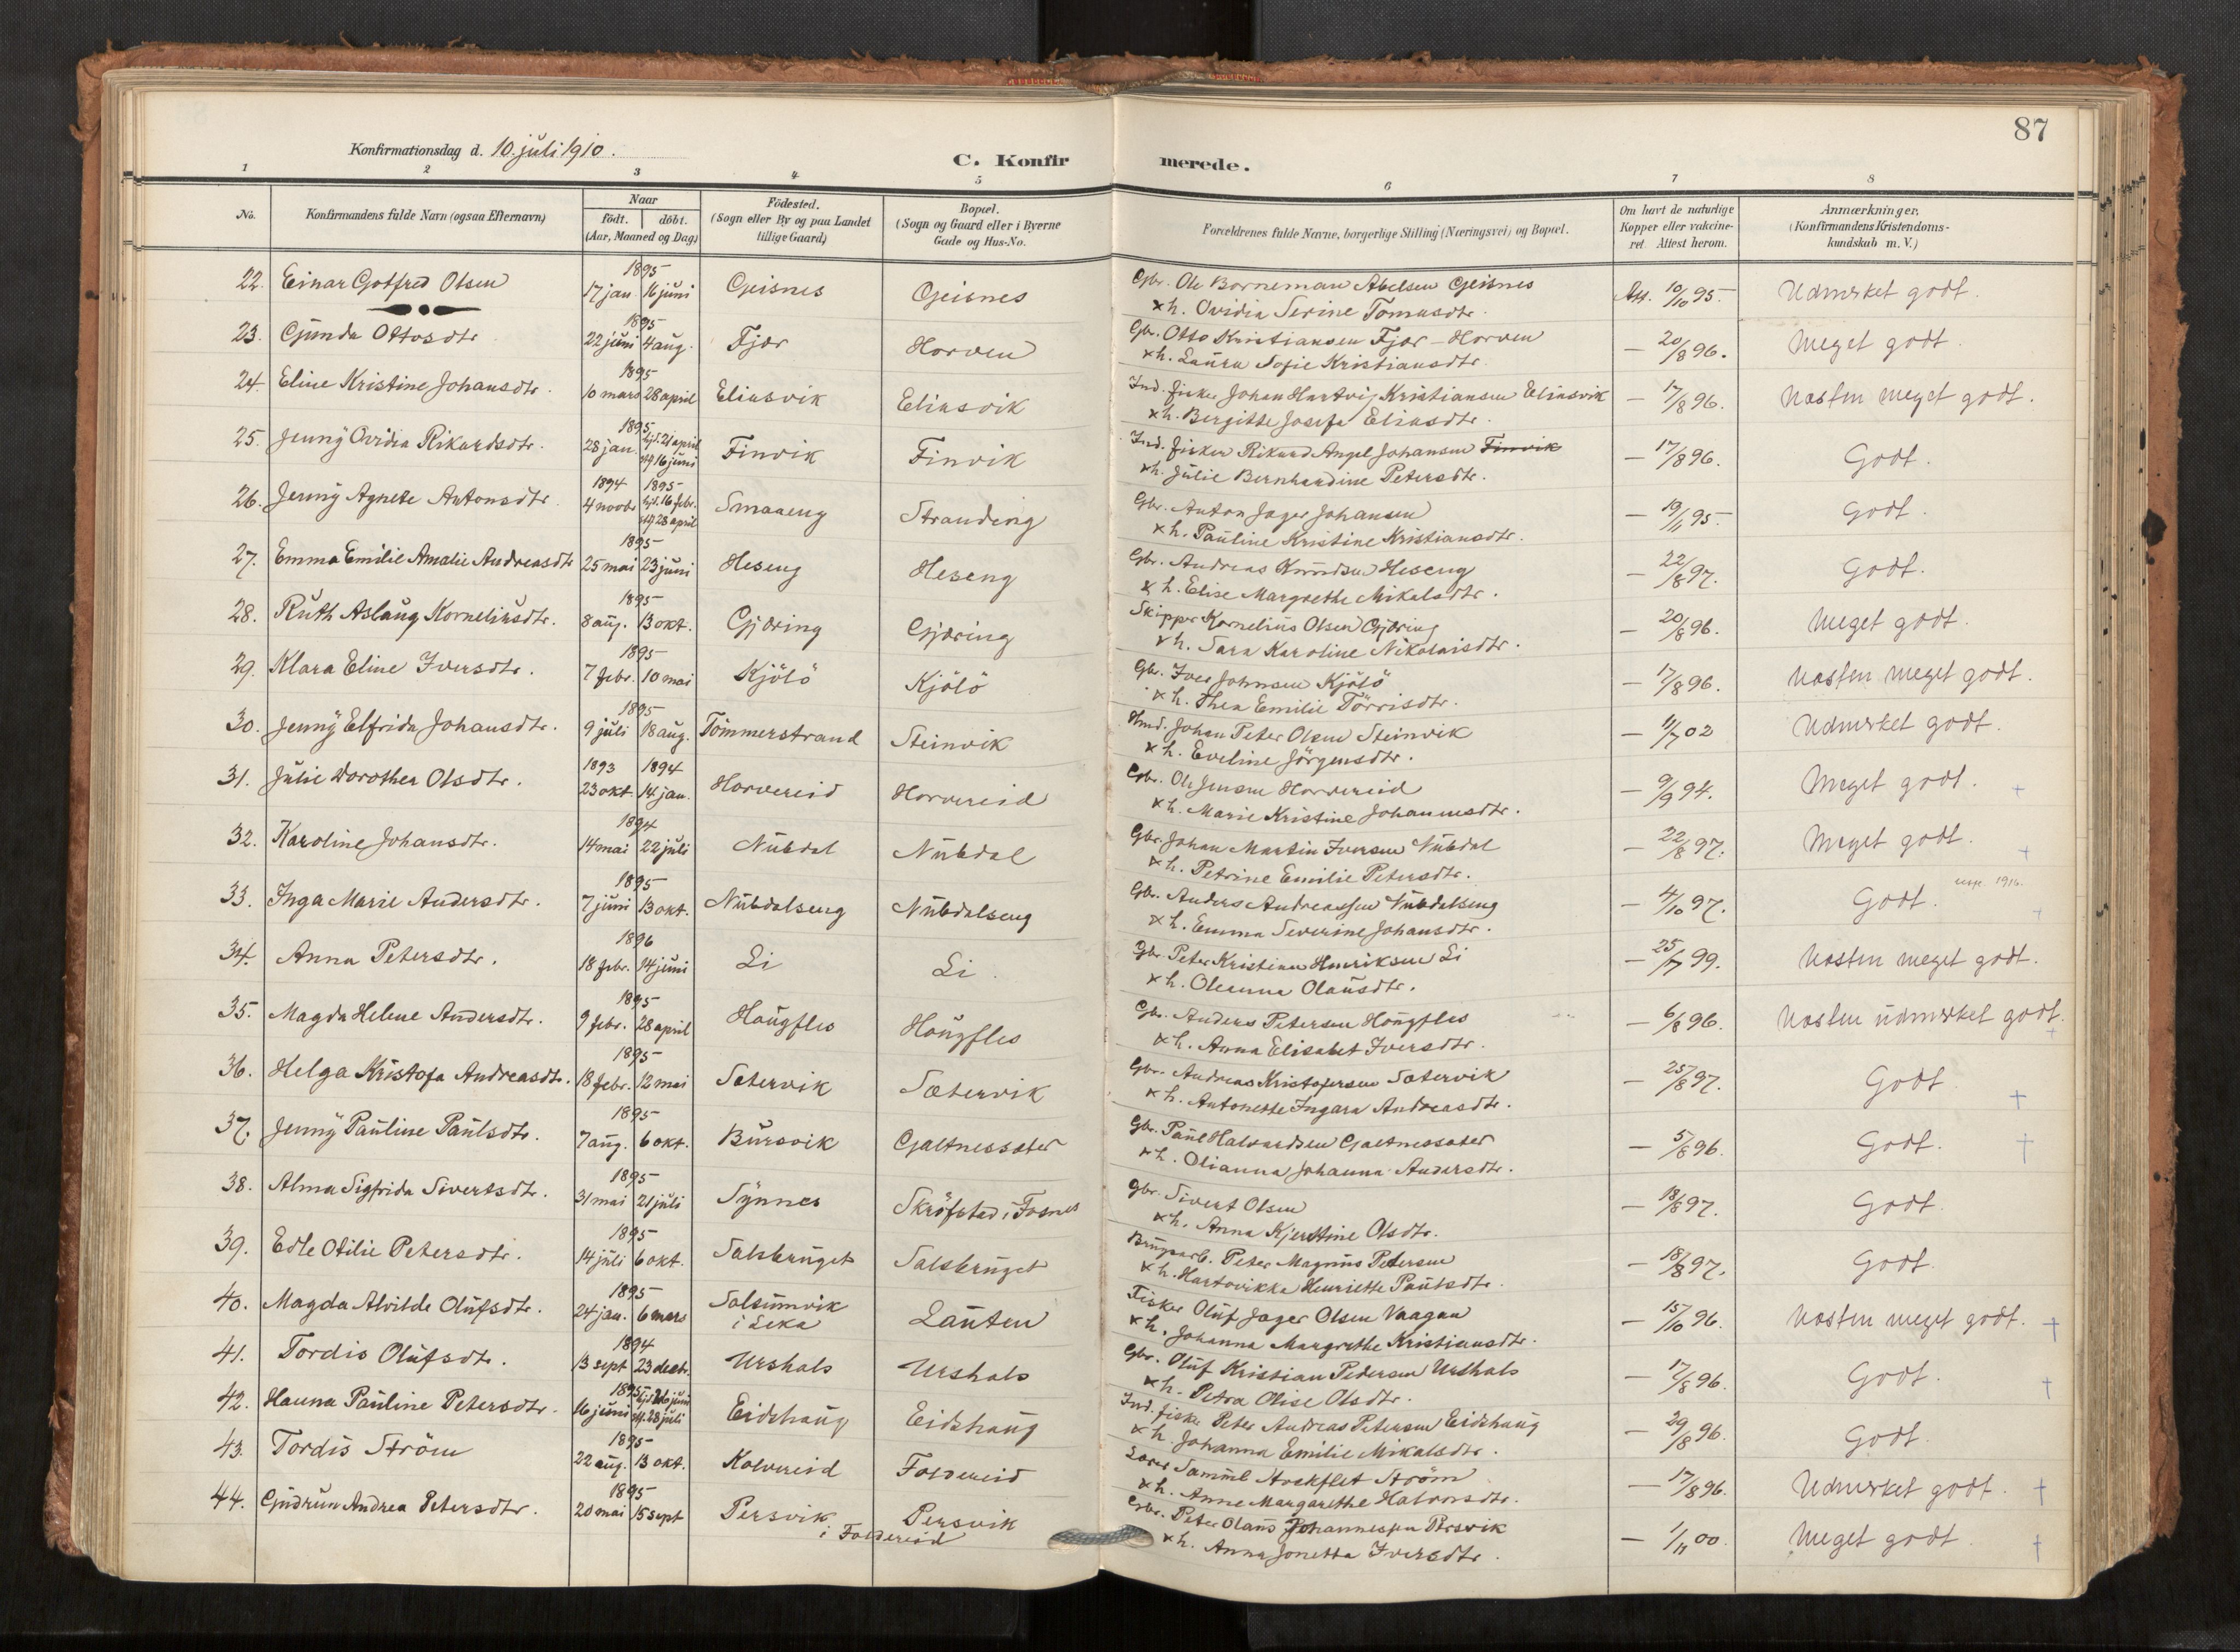 87
Konfirmationsdag d. 10. juli 1910.
C. Konfir merede.
1 2 3 4 5 6 7 8
No. Konfirmandens fulde Navn (ogsaa Efternavn) Naar født. døbt. (Aar, Maaned og Dag) Fødested. (Sogn eller By og paa Landet tillige Gaard) Bopæl. (Sogn og Gaard eller i Byerne Gade og Hus-No. Forældrenes fulde Navne, borgerlige Stilling (Næringsvei) og Bopæl. Om havt de naturlige Kopper eller vakcineret. Attest herom. Anmærkninger. (Konfirmandens Kristendomskundskab m. V.)
22. Einar Gotfred Olsen 1895 17 jan. 16 juni Geisnes Geisnes Gbr. Ole Borneman Abelsen Geisnes Att. 10/10 95. Udmerket godt.
x h. Ovidia Serine Tomasdtr.
23. Gunda Ottosdtr 1895 22 juni 4 aug. Fjær Horven Gbr. Otto Kristiansen Fjær - Horven — 20/8 96. Meget godt.
x h. Laura Sofie Kristiansdtr.
24. Eline Kristine Johansdtr. 1895 10 mars 28 april Eliasvik Eliasvik Ind. fisker Johan Hartvig Kristiansen Eliasvik — 17/8 96. Næsten meget godt.
x h. Bergitte Josefa Eliasdtr.
25. Jenny Ovidia Rikardsdtr. 1895 28 jan. hjd. 21 april stf. 16 juni Finvik Finvik Ind. fisker Rikard Angel Johansen Finvik — 17/8 96. Godt.
x h. Julie Bernhardine Petersdtr.
26. Jenny Agnete Antonsdtr 1894 1895 4 novbr hjd. 16 febr. stf 28 april Smaaeng Stranding Gbr. Anton Jager Johansen — 19/11 95. Godt.
x h. Pauline Kristine Kristiansdtr.
27. Emma Emilie Amalie Andreasdtr 1895 25 mai 23 juni Heseng Heseng Gbr. Andreas Knudsen Heseng — 22/8 97. Godt.
x h. Elise Margrethe Mikalsdtr.
28. Ruth Aslaug Korneliusdtr. 1895 8 aug. 13 okt. Gjæring Gjæring Skipper Kornelius Olsen Gjæring — 20/8 96. Meget godt.
x h. Sara Karoline Nikolaisdtr.
29. Klara Eline Iversdtr. 1895 7 febr. 10 mai Kjölö Kjölö Gbr. Iver Johnsen Kjölö — 17/8 96. Næsten meget godt.
x h. Thea Emilie Törrisdtr.
30. Jenny Elfrida Johansdtr. 1895 9 juli 18 aug. Tömmerstrand Steinvik Hmd. Johan Peter Olsen Steinvik — 11/7 02 Udmerket godt.
x h. Eveline Jörgensdtr.
31. Julie Dorothea Olsdtr. 1893 1894 23 okt. 14 jan. Horvereid Horvereid Gbr. Ole Jensen Horvereid — 9/9 94. Meget godt. +
x h. Marie Kristine Johannesdtr.
32. Karoline Johansdtr. 1894 14 mai 22 juli Nubdal Nubdal Gbr. Johan Martin Iversen Nubdal — 22/8 97. Meget godt. +
x h. Petrine Emilie Petersdtr.
33. Inga Marie Andersdtr. 1895 7 juni 13 okt. Nubdalseng Nubdalseng Gbr. Anders Andreassen Nubdalseng — 4/10 97. Godt. 1916. +
x h. Emma Severine Johansdtr.
34. Anna Petersdtr. 1896 18 febr. 14 juni Li Li. Gbr. Peter Kristian Henriksen Li — 25/7 99. Næsten meget godt.
x h. Oleanna Olausdtr.
35. Magda Helene Andersdtr. 1895 9 febr. 28 april Haugfles Haugfles Gbr. Anders Petersen Haugfles — 6/8 96. Næsten udmerket godt. +
x h. Anna Elisabet Iversdtr.
36. Helga Kristofa Andreasdtr. 1895 18 febr. 12 mai Sætervik Sætervik Gbr. Andreas Kristofersen Sætervik — 25/8 97. Godt +
x h. Antonette Ingara Andreasdtr.
37. Jenny Pauline Paulsdtr. 1895 7 aug. 6 okt. Bursvik Galtnessæter Gbr. Paul Halvardsen Galtnessæter — 5/8 96. Godt. +
x h. Olianna Johanna Andersdtr.
38. Alma Sigfrida Sivertsdtr. 1895 31 mai 21 juli Synnes Skröfstad i Fosnes Gbr. Sivert Olsen — 18/8 97. Godt.
x h. Anna Kjerstine Olsdtr.
39. Edle Otilie Petersdtr. 1895 14 juli 6 okt. Salsbruget Salsbruget Brugsarb. Peter Magnus Petersen — 18/8 97. Godt.
x h. Hartvikka Henriette Paulsdtr.
40. Magda Alvilde Olufsdtr. 1895 24 jan. 6 mars Salsumvik i Leka Lauten Fisker Oluf Jager Olsen Vaagan — 15/10 96. Næsten meget godt. +
x h. Johanna Margrethe Kristiansdtr.
41. Tordis Olufsdtr. 1894 13 sept 23 decbr. Urshals Urshals Gbr. Oluf Kristian Pedersen Urshals — 17/8 96. Godt. +
x h. Petra Olise Olsdtr.
42. Hanna Pauline Petersdtr. 1895 16 juni hjd. 26 juni stf. 28 juli Eidshaug Eidshaug Ind. fisker Peter Andreas Petersen Eidshaug — 29/8 96. Godt.
x h. Johanna Emilie Mikalsdtr.
43. Tordis Ström 1895 22 aug. 13 okt. Kolvereid Foldereid Lærer Samuel Stockflet Ström — 17/8 96. Udmerket godt. +
x h. Anne Margarethe Halvorsdtr.
44. Gudrun Andrea Petersdtr. 1895 20 mai 15 sept Persvik i Foldereid Persvik Gbr. Peter Olaus Johannessen Persvik — 1/11 00. Meget godt +
x h. Anna Jonetta Iversdtr.